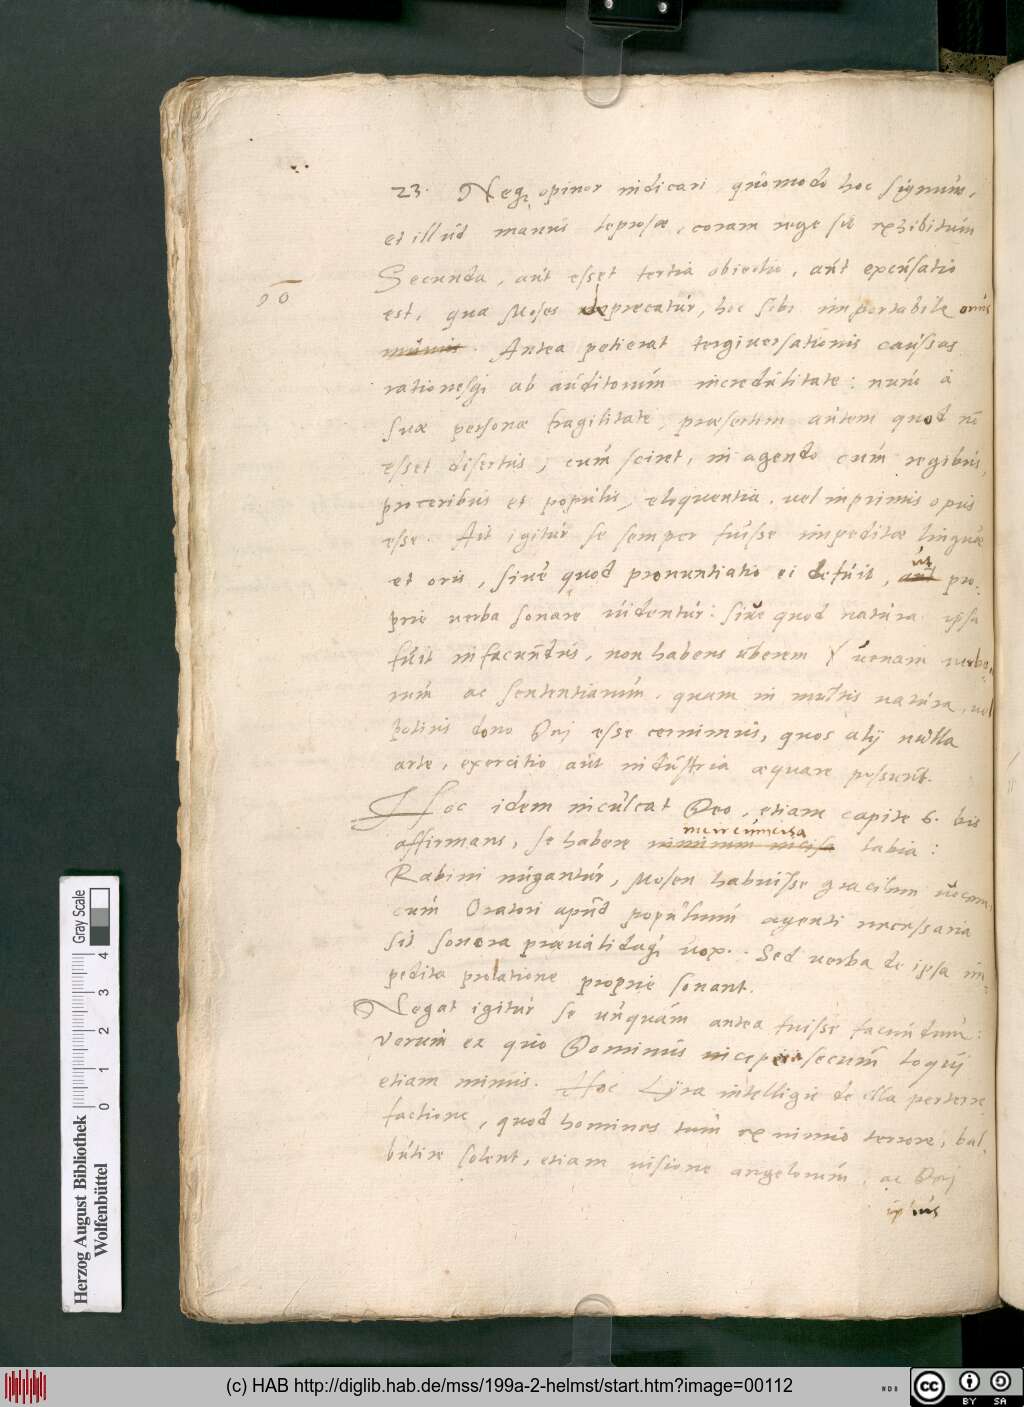 23. Neqꝫ opinor indicari quomodo hoc signum,
et illud manus leprosæ, coram rege sit exhibitum
Secunda, aut esset tertia obiectio, aut excusatio
90
est, qua Moses deprecatur, hoc sibi importabile onus
Antea petierat tergiversationis caussas
rationesqꝫ ab auditorum incredulitate: nunc à
suæ personæ fragilitate, præsertim autem quod nō
esset disertus, cum sciret, in agendo cum regibus,
proceribus et populis, eloquentia vel inprimis opus
esse. Ait igitur se semper fuisse impeditæ linguæ
et oris, sive quod pronuntiatio ei defuit, ut
aut pro-
prie verba sonare videntur: sive quod natura ipsa
fuit infacundus, non habens uberem venam verbo-
rum ac sententiarum. quam in multis natura, vel
potius dono Dei esse cernimus, quos alij nulla
arte, exercitio aut industria æquare possunt.
Hoc idem inculcat Deo, etiam capite 6. bis
affirmans, se habere incircumcisa
labia:
Rabini nugantur, Mosen habuisse gracilem vocem,
cum Oratori apud populum agenti necessaria
sit sonora prævalidaqꝫ vox. Sed verba de ipsa im-
pedita prolatione proprie sonant.
Negat igitur se unquam antea fuisse facundum:
Verum ex quo Dominus inceperit secum loqui
etiam minus. Hoc Lyra intelligit de illa perterre
factione, quod homines tum ex nimio terrore, bal-
butire solent, etiam visione angelorum, ac Dei
ipsius
Gray Scale
0 1 2 3 4
Herzog August Bibliothek
Wolfenbüttel
(c) HAB http://diglib.hab.de/mss/199a-2-helmst/start.htm?image=00112
cc BY SA